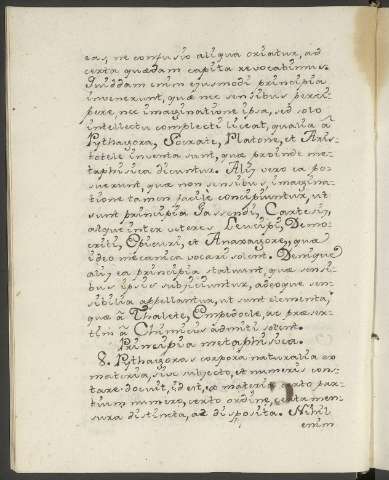 eas, ne confusio aliqua oriatur, ad
certa quædam capita revocabimus.
Quiddam enim ejusmodi principia
invenerunt, quæ nec sensibus perci-
pere, nec imaginatione ipsa, sed solo
intellectu complecti liceat, qualia à
Pythagora, Socrate, Platone, et Aris-
totele inventa sunt, quæ proinde me-
taphisica dicuntur. Alij vero ea po-
suerunt, quæ non sensibus, imagina-
tione tamen facile concipiuntur, ut
sunt principia Gassendi, Cartesij,
atque inter veteres Leucipi, Demo-
criti, Epicuri, et Anaxagoræ, quæ
ideo mecanica vocari solent. Denique
alij ea principia statuunt, quæ sensi-
bus ipsis subjiciuntur, adeoque sen-
sibilia appellantur, ut sunt elementa,
quæ à Thalete, Empedocle, ac præser-
tim à Chimicis admitti solent.
Principia metaphisica.
8. Pythagoras corpora naturalia ex
materia, sive subjecto, et numeris cons-
tare docuit, id est, ex materia certo par-
tium numero, certo ordine, certa men-
sura distincta, ac disposita. Nihil
enim